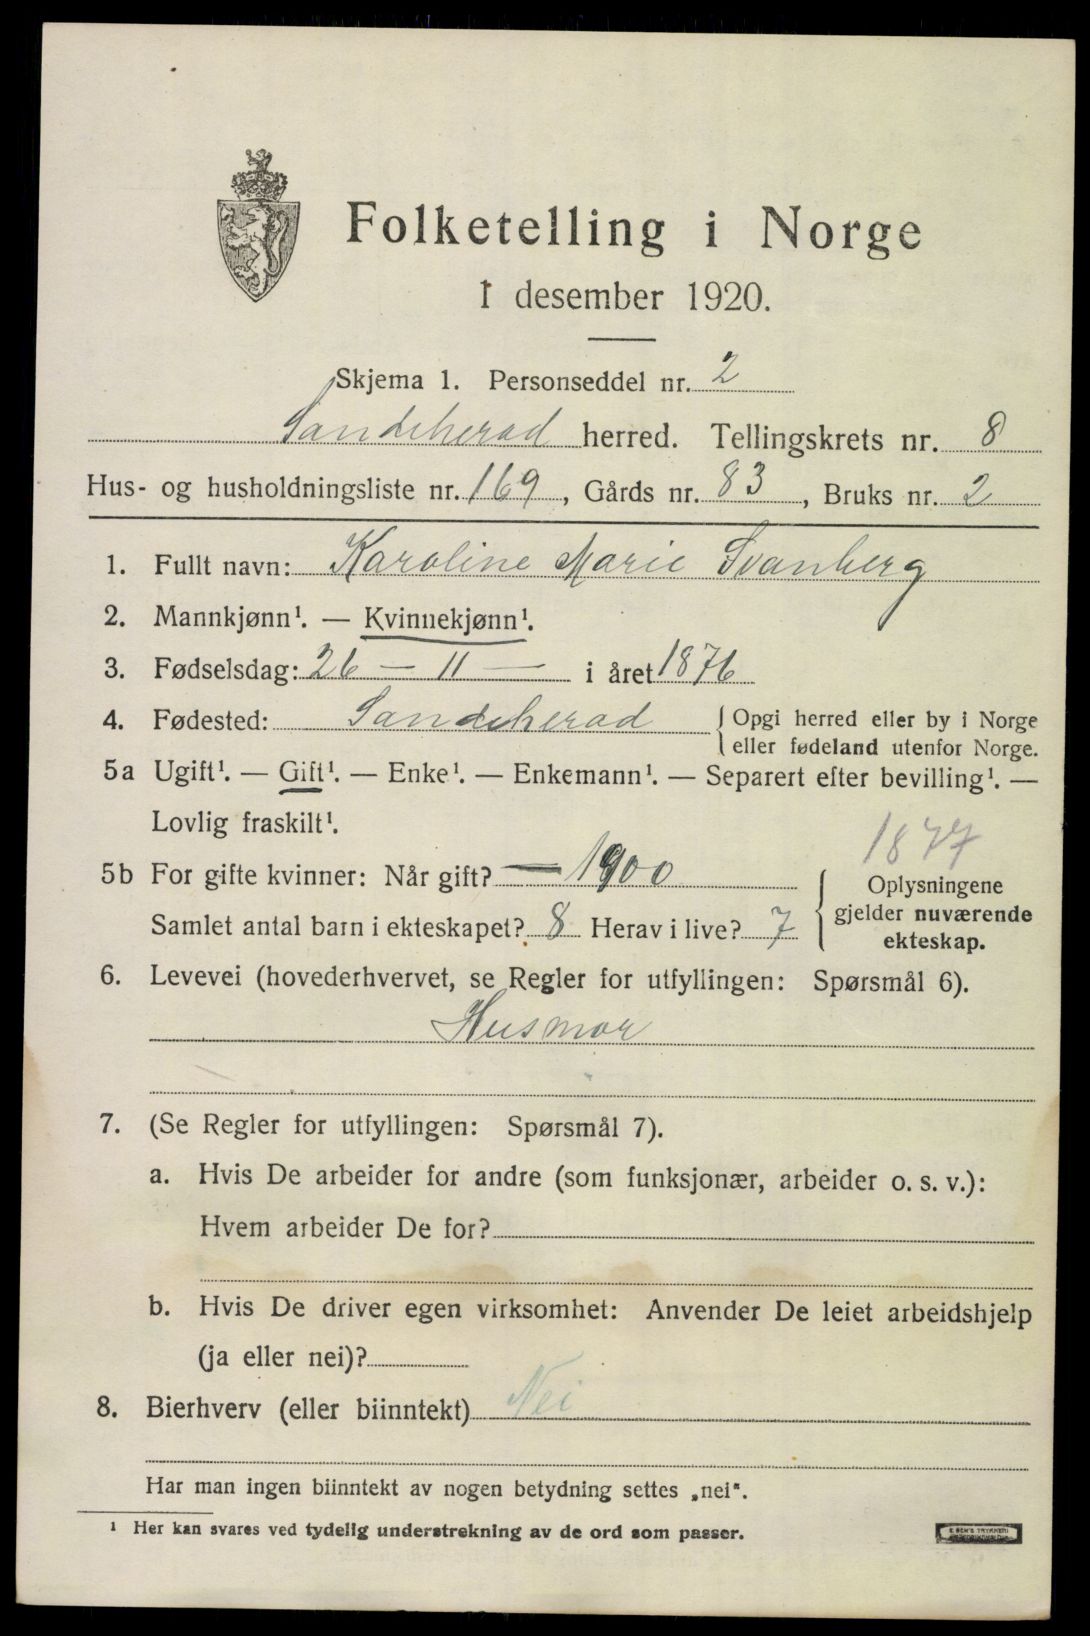 Folketelling i Norge
1 desember 1920.
Skjema 1. Personseddel nr. 2
Sandeherad herred. Tellingskrets nr. 8
Hus- og husholdningsliste nr. 169, Gårds nr. 83, Bruks nr. 2
1. Fullt navn: Karoline Marie Svanberg
2. Mannkjønn¹. — Kvinnekjønn¹.
3. Fødselsdag: 26 — 11 — i året 1876
4. Fødested: Sandeherad { Opgi herred eller by i Norge
eller fødeland utenfor Norge.
5a Ugift¹. — Gift¹. — Enke¹. — Enkemann¹. — Separert efter bevilling¹. —
Lovlig fraskilt¹.
1877
5b For gifte kvinner: Når gift? — 1900
Samlet antal barn i ekteskapet? 8 Herav i live? 7
{ Oplysningene
gjelder nuværende
ekteskap.
6. Levevei (hovederhvervet, se Regler for utfyllingen: Spørsmål 6).
Husmor
7. (Se Regler for utfyllingen: Spørsmål 7).
a. Hvis De arbeider for andre (som funksjonær, arbeider o. s. v.):
Hvem arbeider De for?
b. Hvis De driver egen virksomhet: Anvender De leiet arbeidshjelp
(ja eller nei)?
8. Bierhverv (eller biinntekt) Nei
Har man ingen biinntekt av nogen betydning settes „nei“.
¹ Her kan svares ved tydelig understrekning av de ord som passer.